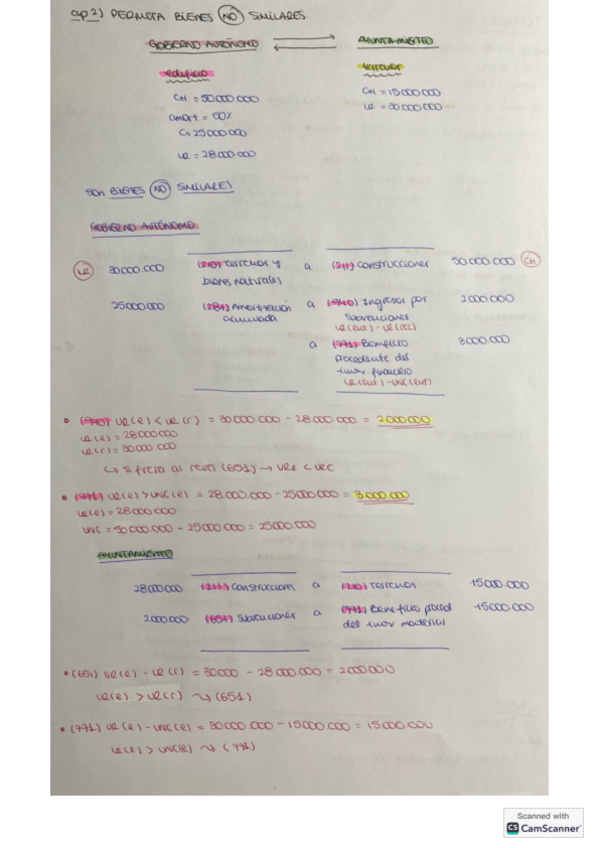 ap 2) PERMUTA BIENES NO SIMILARES.
GOBIERNO AUTÓNOMO
AYUNTAMIENTO
edificio
terrenos
CH = 50 000 000
CH = 15 000 000
amort =
VR = 30 000 000
25 000 000
VR = 28 000.000
SON BIENES NO SIMILARES
GOBIERNO AUTÓNOMO
VR 30 000.000 (210) terrenos y bienes naturales a (211) Construcciones 50 000.000 CH
25 000 000 (281) Amortización acumulada a (940) Ingresos por subvenciones 2 000 000
VR(ent) - VR(rec)
a (771) Beneficio procedente del inmv. financiero 3 000 000
VR(ent) - VNC(ent)
• (940) VR(e) < VR(r) = 30 000.000 - 28 000 000 = 2 000 000
VR(e) = 28 000 000
VR(r) = 30 000.000
↳ si fuera al revés (651) →
• (771) VR(e) > VNC(e) = 28 000.000 - 25 000 000 = 3 000.000
VR(e) = 28 000 000
VNC = 50 000 000 - 25 000 000 = 25 000 000
AYUNTAMIENTO
28 000 000 (211) Construcciones a (210) terrenos 15 000.000
2 000 000 (651) Subvenciones a (771) Beneficio proced del inmv material 15 000 000
• (651) VR(e) - VR(r) = 30 000 - 28 000.000 = 2 000 000
VR(e) > VR(r) ↝ (651)
• (771) VR(e) - VNC(e) = 30 000.000 - 15 000.000 = 15 000.000
VR(e) > VNC(e) ↝ (771)
Scanned with
CS CamScanner